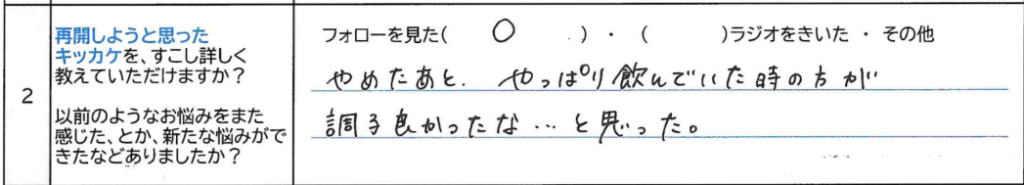 2
再開しようと思った
キッカケを、すこし詳しく
教えていただけますか？
以前のようなお悩みをまた
感じた、とか、新たな悩みがで
きたなどありましたか？
フォローを見た( 〇 ) ・ ( )ラジオをきいた ・ その他
やめたあと、やっぱり飲んでいた時の方が
調子良かったな…と思った。